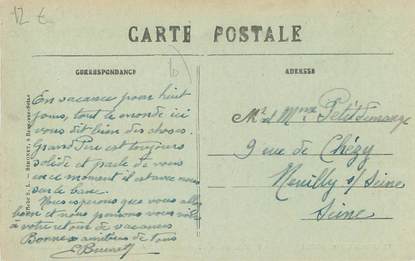 CARTE POSTALE
CORRESPONDANCE
ADRESSE
En vacance pour huit
jours, tout le monde ici
vous dit bien des choses.
Grand Père est toujours
solide et parle de vous
en ce moment il est avec nous
sur le banc.
Nous esperons que vous allez
bien et nous pensons vous voir
à votre retour de vacances
Bonnes amitiées de tous
Mr et Mme Petitdemange
9 rue de Chézy
Neuilly s/ Seine
Seine